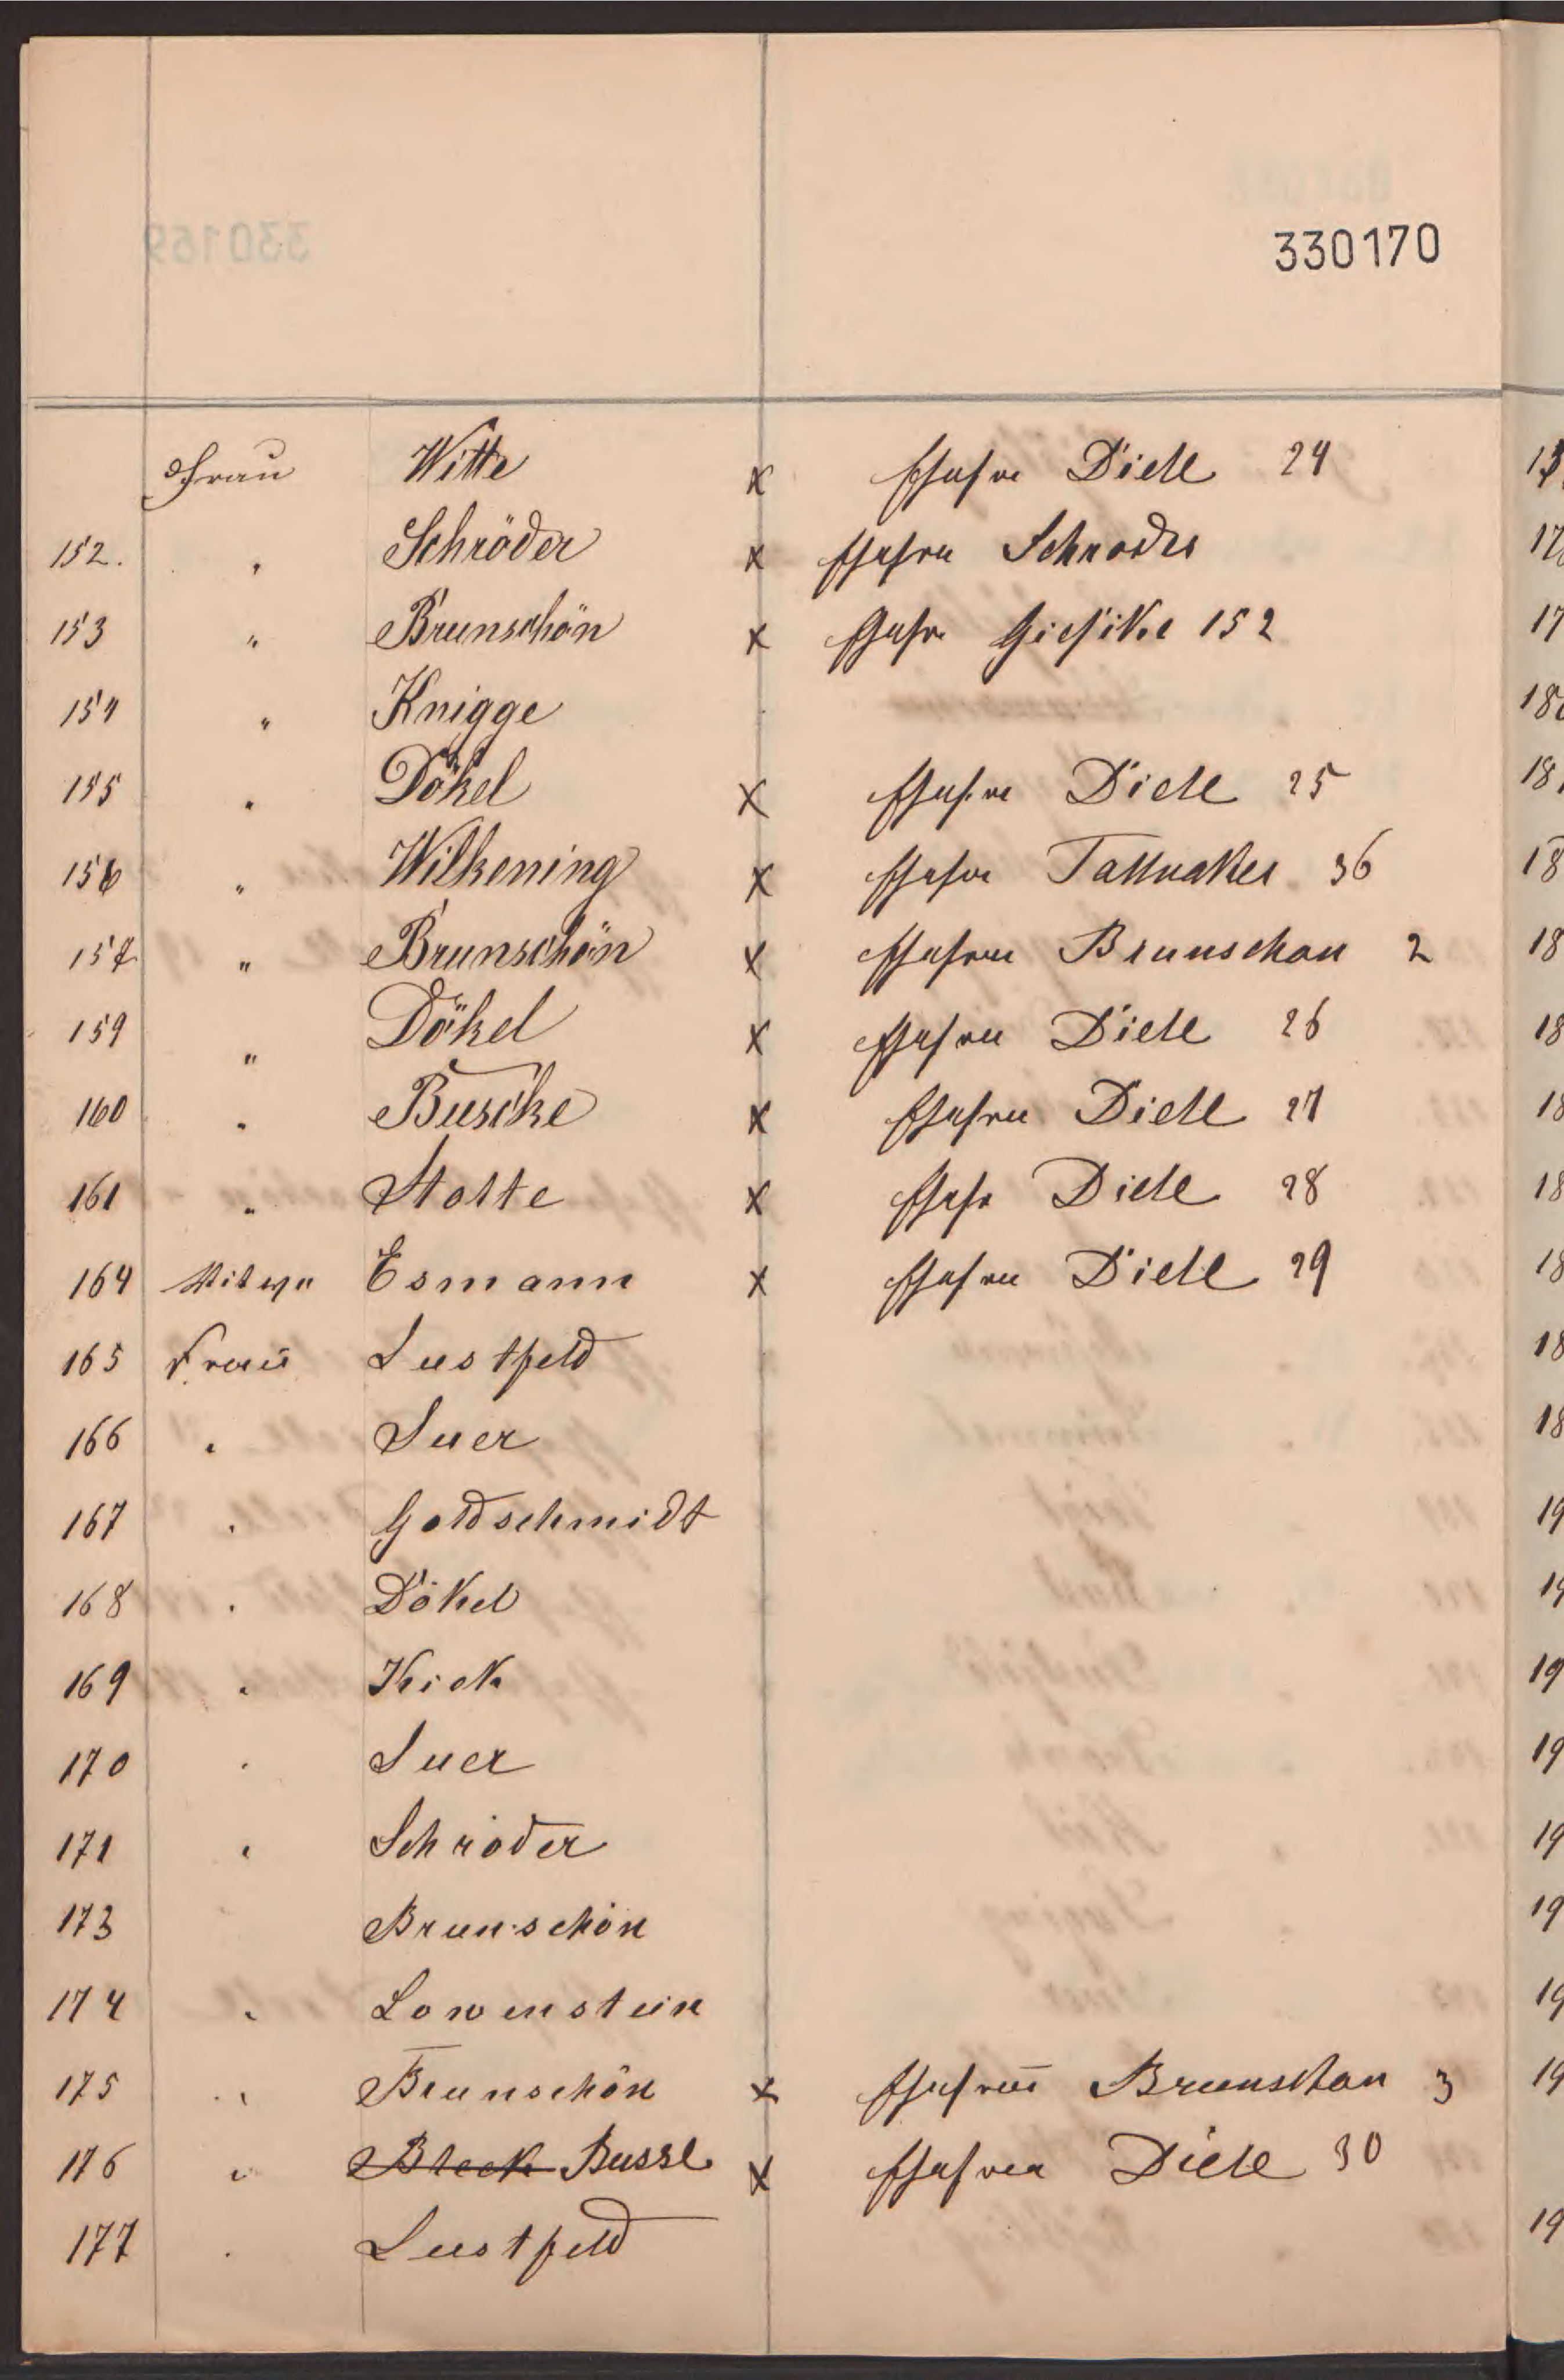 330170
Frau Witte x Ehefrau Diele 24
152. " Schröder x Ehefrau Schroder
153 " Brunschön x Ehefr Giesike 152
154 " Knigge
155 " Dökel x Ehefrau Diele 25
156 " Wilkening x Ehefrau 36
157 " Brunschön x Ehefrau Brunschon 2
159 " Dökel x Ehefrau Diele 26
160 " Buscke x Ehefrau Diele 27
161 " Stolte x Ehefr Diele 28
164 Witwe Esmann x Ehefrau Diele 29
165 Frau Lustfeld
166 " Suer
167 " Goldschmidt
168 " Dökel
169 " Kick
170 " Suer
171 " Schröder
173 Brunschön
174 " Lowenstein
175 " Brunschön x Ehefrau Brunschon 3
176 " Bleck Busse x Ehefrau Diele 30
177 " Lustfeld